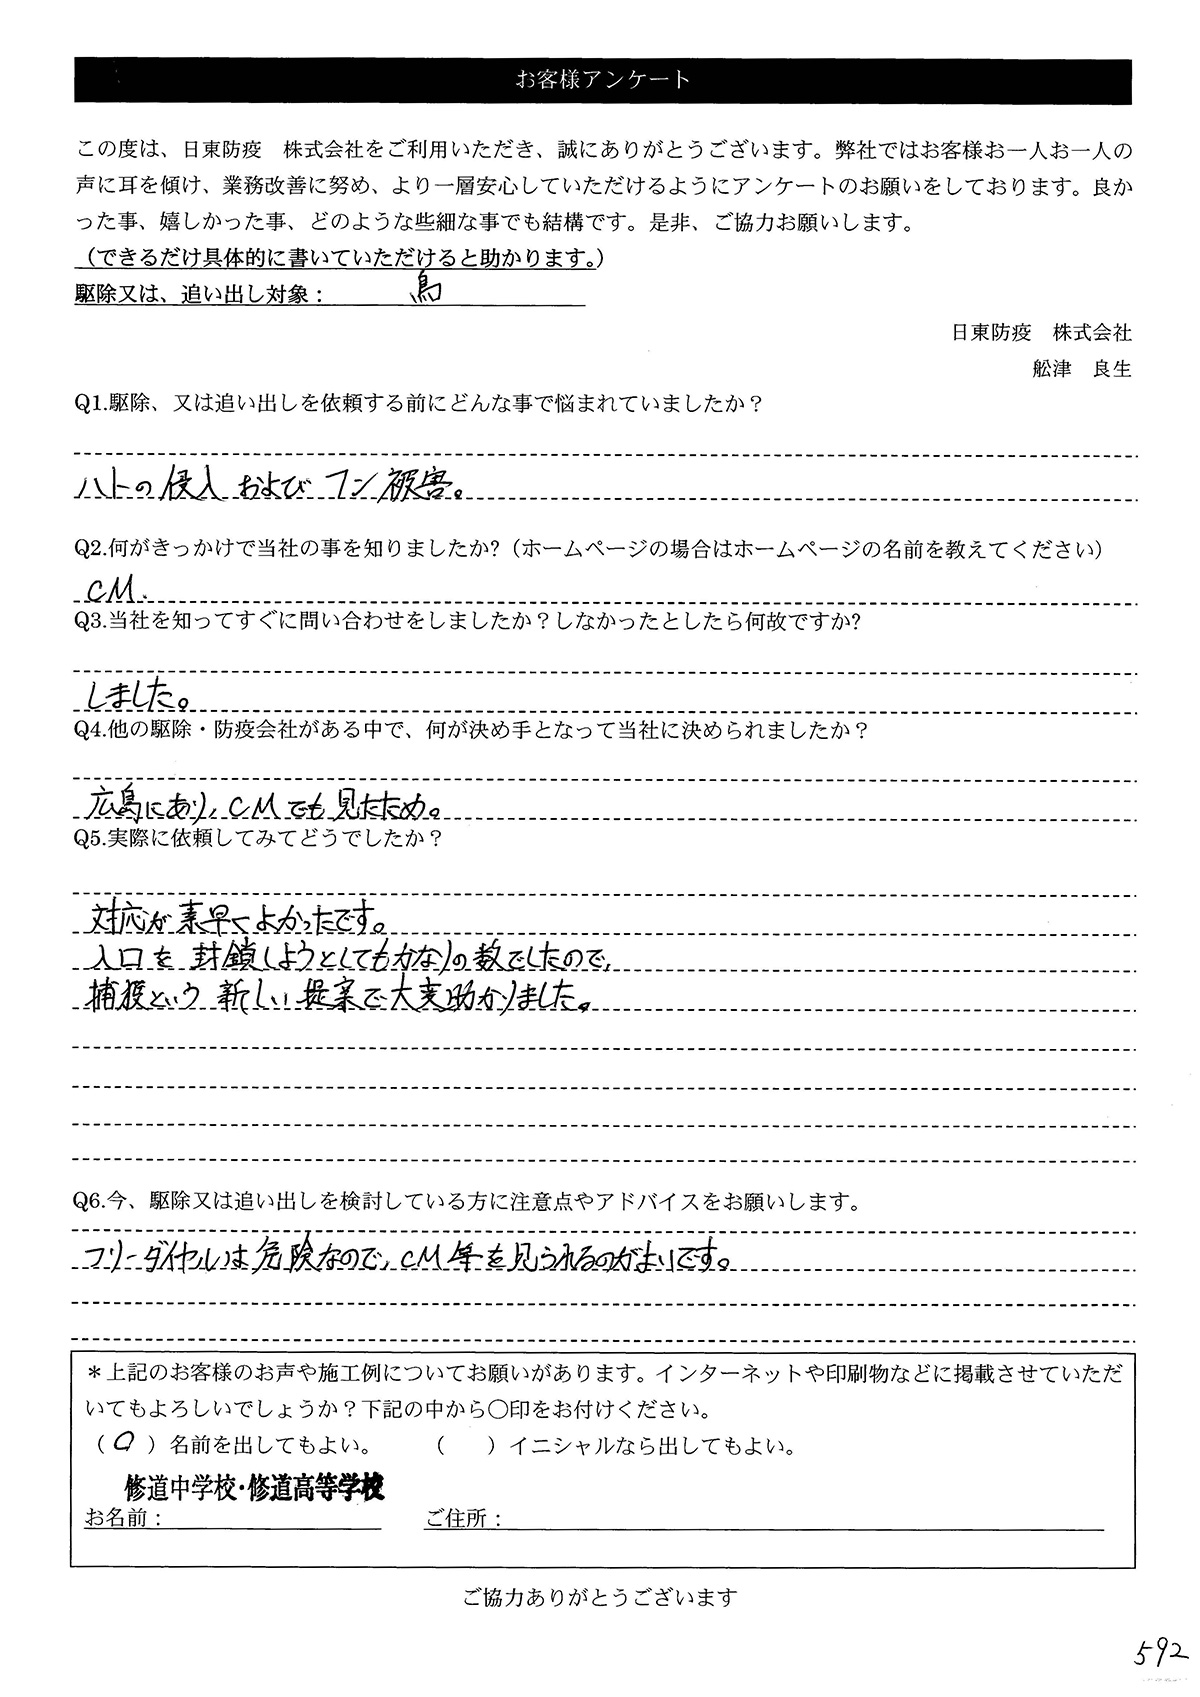 お客様アンケート
この度は、日東防疫　株式会社をご利用いただき、誠にありがとうございます。弊社ではお客様お一人お一人の
声に耳を傾け、業務改善に努め、より一層安心していただけるようにアンケートのお願いをしております。良か
った事、嬉しかった事、どのような些細な事でも結構です。是非、ご協力お願いします。
（できるだけ具体的に書いていただけると助かります。）
駆除又は、追い出し対象： 鳥
日東防疫　株式会社
舩津　良生
Q1.駆除、又は追い出しを依頼する前にどんな事で悩まれていましたか？
ハトの侵入 および フン被害。
Q2.何がきっかけで当社の事を知りましたか?（ホームページの場合はホームページの名前を教えてください）
CM.
Q3.当社を知ってすぐに問い合わせをしましたか？しなかったとしたら何故ですか?
しました。
Q4.他の駆除・防疫会社がある中で、何が決め手となって当社に決められましたか？
広島にあり、CMでも見たため。
Q5.実際に依頼してみてどうでしたか？
対応が素早くよかったです。
入口を封鎖しようとしてもかなりの数でしたので、
捕獲という新しい提案で大変助かりました。
Q6.今、駆除又は追い出しを検討している方に注意点やアドバイスをお願いします。
フリーダイヤルは危険なので、CM等を見られるのがよいです。
＊上記のお客様のお声や施工例についてお願いがあります。インターネットや印刷物などに掲載させていただ
いてもよろしいでしょうか？下記の中から○印をお付けください。
（○）名前を出してもよい。　（　）イニシャルなら出してもよい。
修道中学校・修道高等学校
お名前：　ご住所：
ご協力ありがとうございます
592